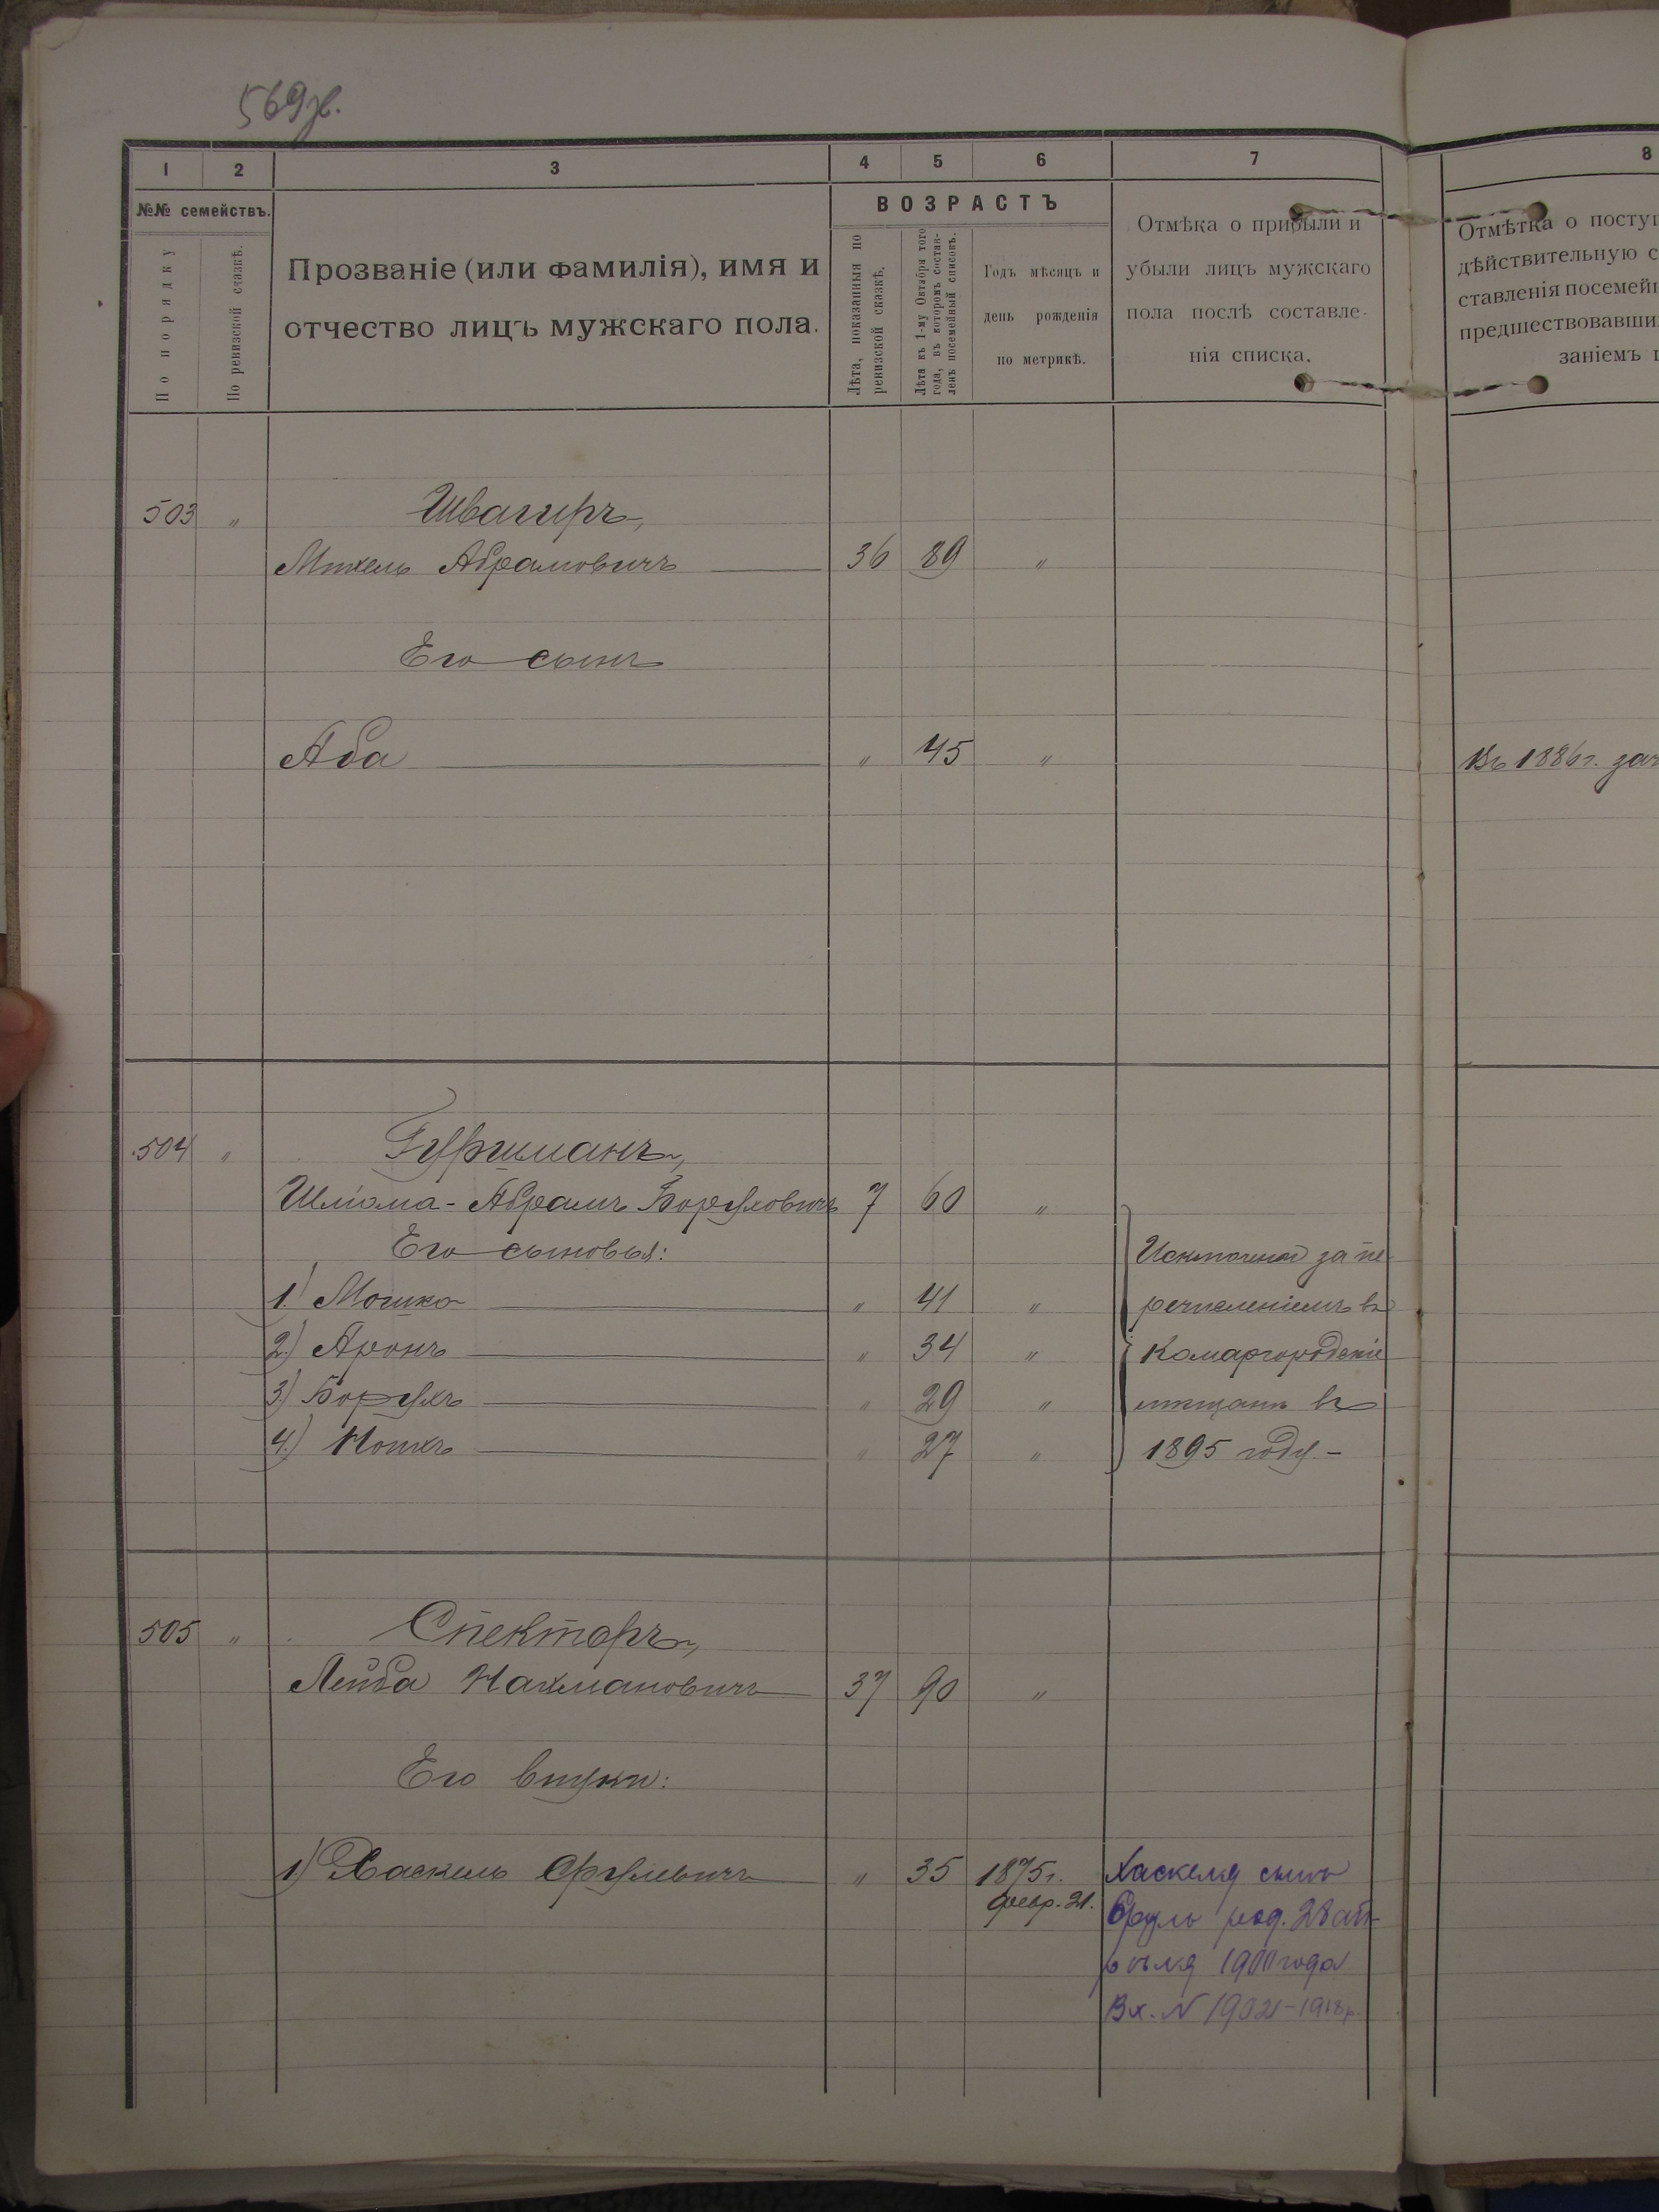 569 зв.
1 2 3 4 5 6 7 8
№№ семействъ.
По порядку
По ревизской сказкѣ.
Прозваніе (или фамилія), имя и
отчество лицъ мужскаго пола.
ВОЗРАСТЪ
Лѣта, показанныя по
ревизской сказкѣ.
Лѣта къ 1-му Октября того
года, въ которомъ состав-
ленъ посемейный списокъ.
Годъ мѣсяцъ и
день рожденія
по метрикѣ.
Отмѣка о прибыли и
убыли лицъ мужскаго
пола послѣ составле-
нія списка.
Отмѣтка о посту
дѣйствительную с
ставленія посемей
предшествовавши
заніемъ
503 " Швагиръ,
Михель Абрамовичъ 36 89 "
Его сынъ
Аба " 45 " Въ 1886 г. зач
504 " Гуршманъ,
Шліома-Абрамъ Боруховичъ 7 60 "
Его сыновья:
1.) Мошко " 41 "
2.) Аронъ " 34 "
3.) Борухъ " 29 "
4.) " 27 "
Исключены за пе-
речисленіемъ въ
Комаргородскіе
мѣщане въ
1895 году.-
505 " Спекторъ,
Лейба Нахмановичъ 37 90 "
Его внуки:
1) Хаскель Срулевичъ " 35 1875 г.
февр. 21.
Хаскеля сынъ
Сруль род. 28 ап-
рѣля 1900 года
Вх. N 1902-1918 р.